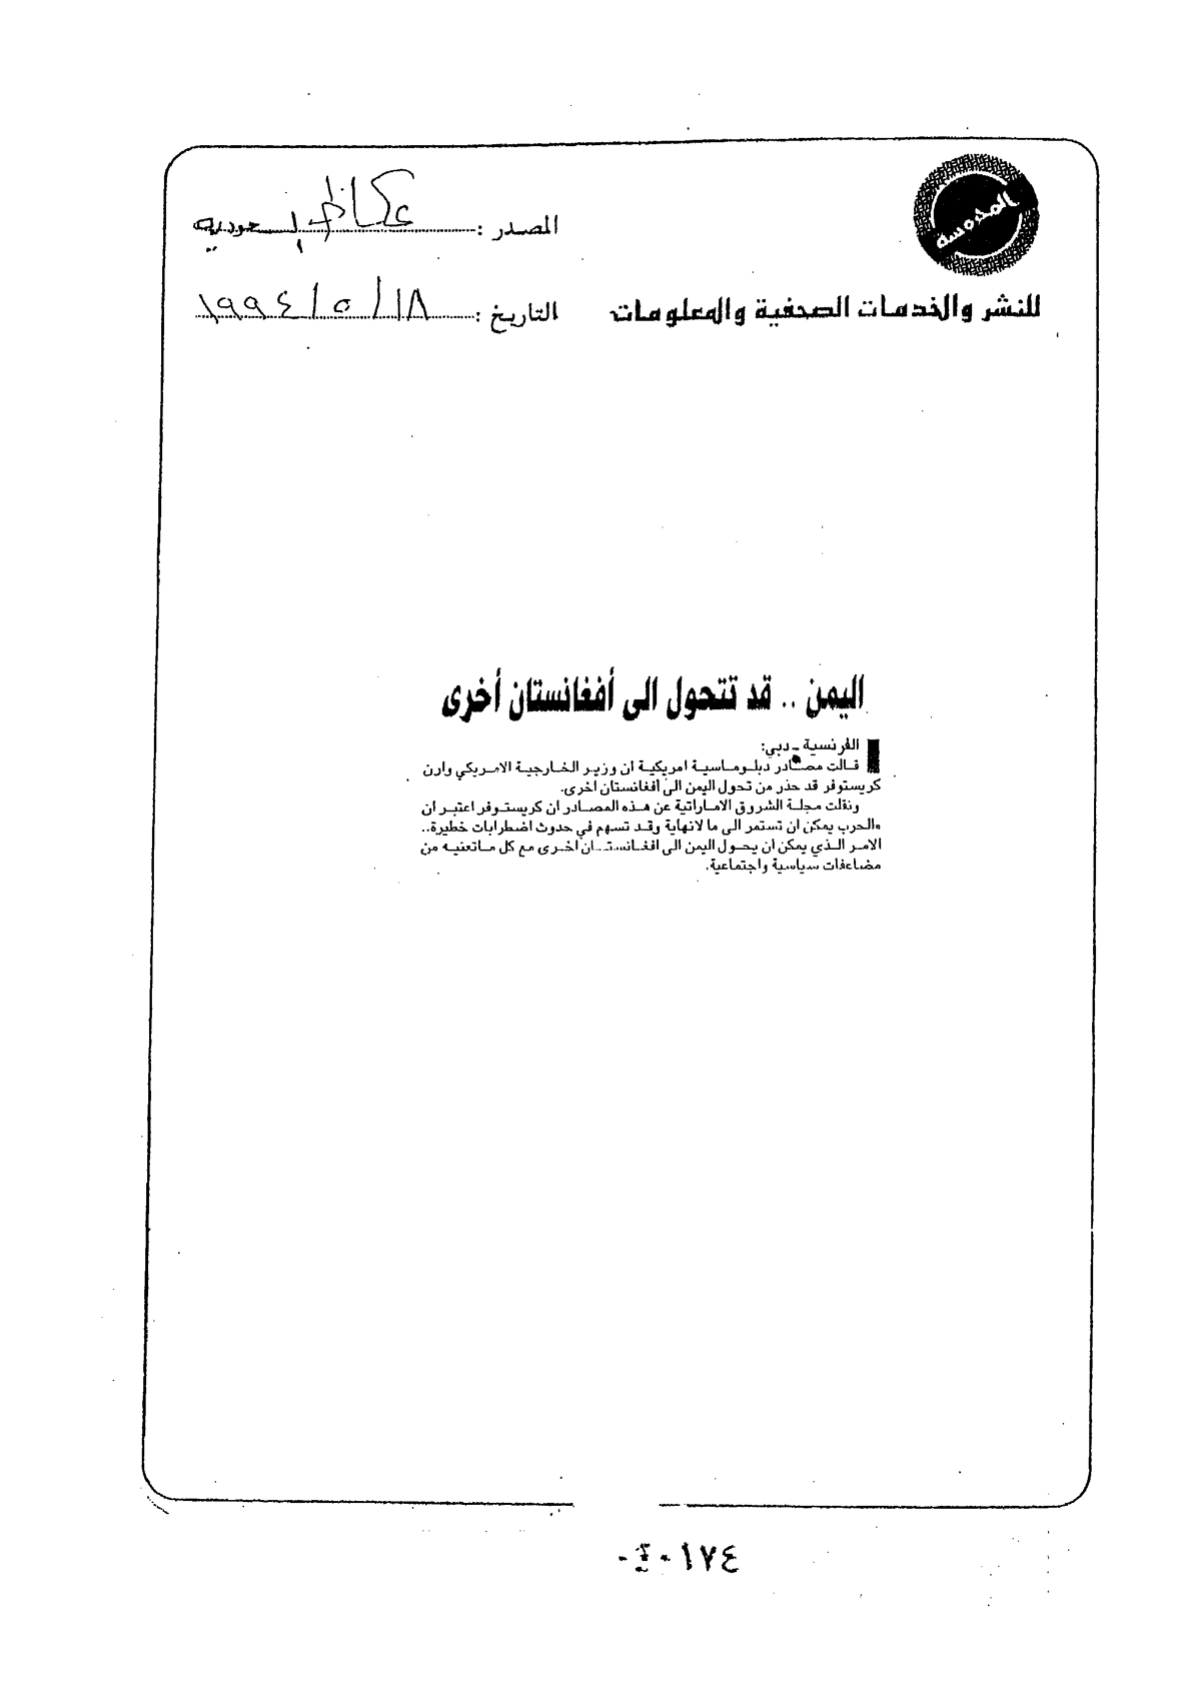 المدرسة
المصدر : عكاظ السعودية
للنشر والخدمات الصحفية والمعلومات
التاريخ : ١٨ / ٥ / ١٩٩٤
اليمن .. قد تتحول الى أفغانستان أخرى
الفرنسية ـ دبي:
قالت مصادر دبلوماسية امريكية ان وزير الخارجية الامريكي وارن
كريستوفر قد حذر من تحول اليمن الى افغانستان اخرى.
ونقلت مجلة الشروق الاماراتية عن هذه المصادر ان كريستوفر اعتبر ان
«الحرب يمكن ان تستمر الى ما لانهاية وقد تسهم في حدوث اضطرابات خطيرة..
الامر الذي يمكن ان يحول اليمن الى افغانستان اخرى مع كل ماتعنيه من
مضاعفات سياسية واجتماعية.
١٧٤